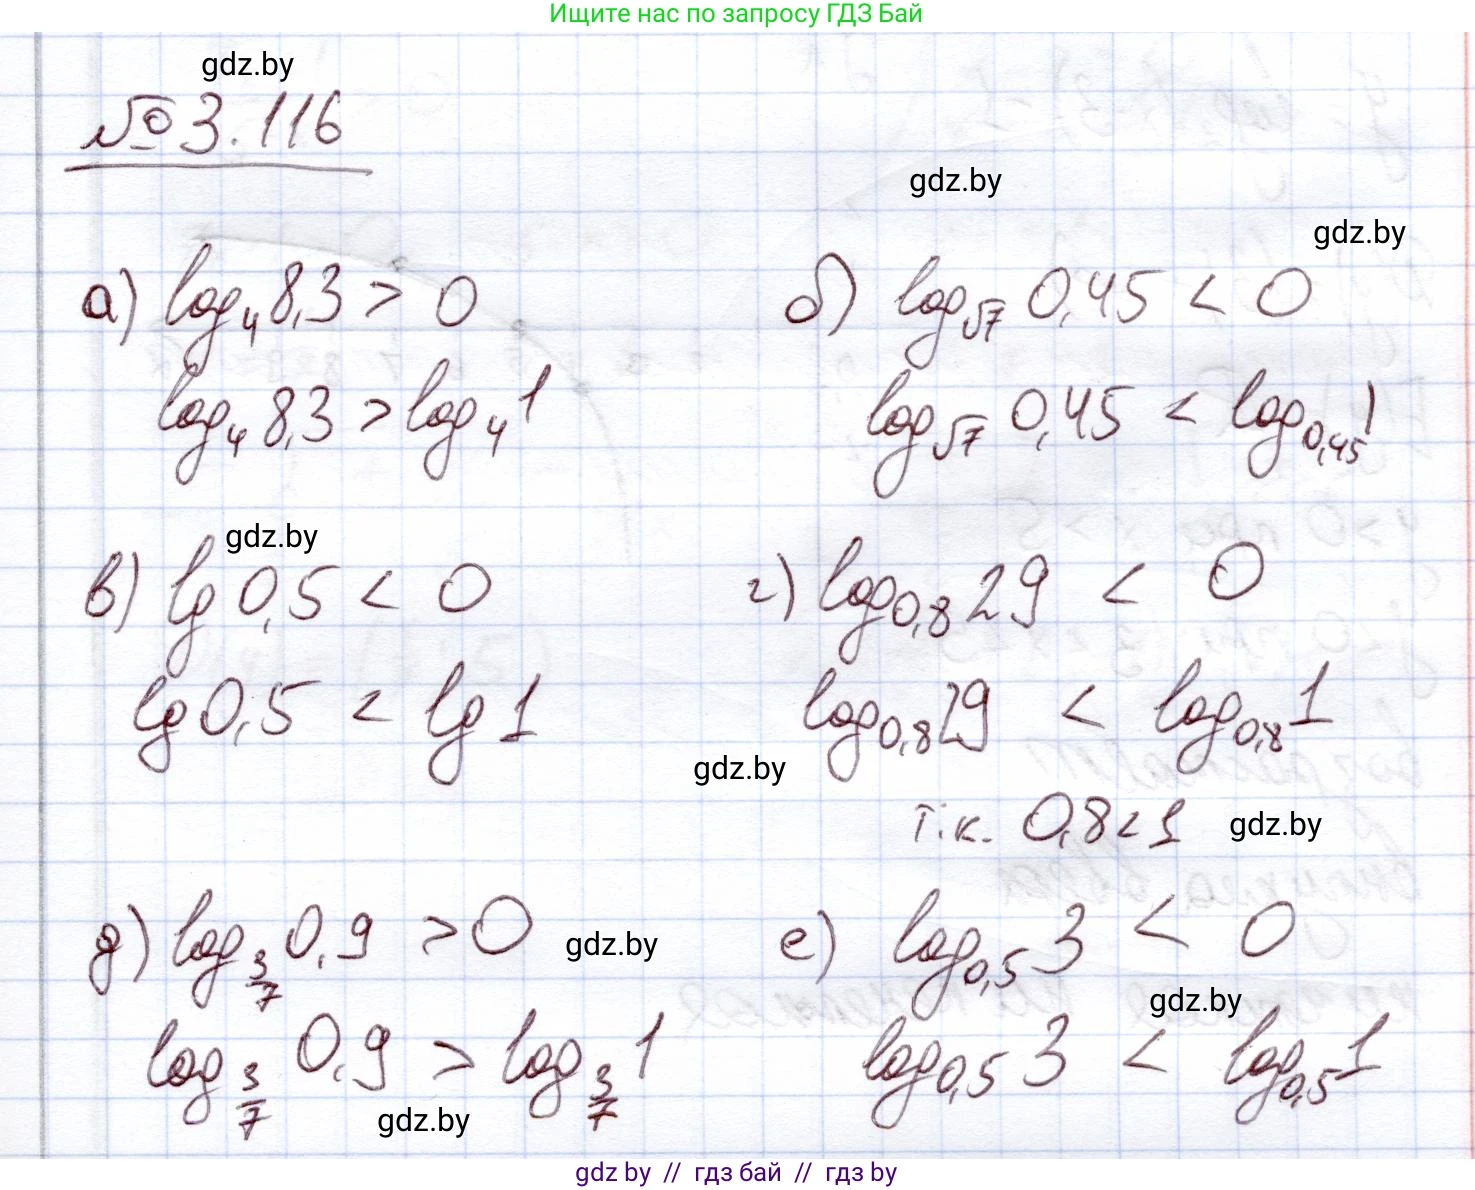 Ищите нас по запросу ГДЗ Бай
gdz.by
№ 3.116
gdz.by
gdz.by
а) log₄ 8,3 > 0
log₄ 8,3 > log₄ 1
б) log_√7 0,45 < 0
log_√7 0,45 < log_0,45 1
gdz.by
в) lg 0,5 < 0
lg 0,5 < lg 1
г) log_0,8 29 < 0
log_0,8 29 < log_0,8 1
gdz.by
т.к. 0,8 < 1
gdz.by
д) log_3/7 0,9 > 0
gdz.by
log_3/7 0,9 > log_3/7 1
gdz.by
е) log_0,5 3 < 0
gdz.by
log_0,5 3 < log_0,5 1
gdz.by // гдз бай // гдз by